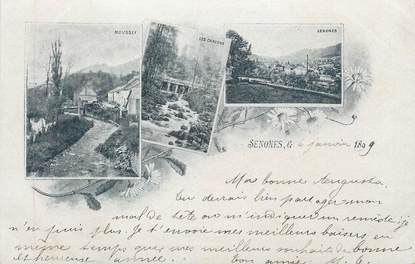 MOUSSEY
LES CHAVONS
SENONES
SENONES, le 6 janvier 1899
Ma bonne Augusta
Tu devrais bien partager mon
mal de tête ou m'indiquer un remède, je
n'en puis plus. Je t'envoie mes meilleurs baisers en
même temps que mes meilleurs souhaits de bonne
et heureuse année. Ton amie. M. G.